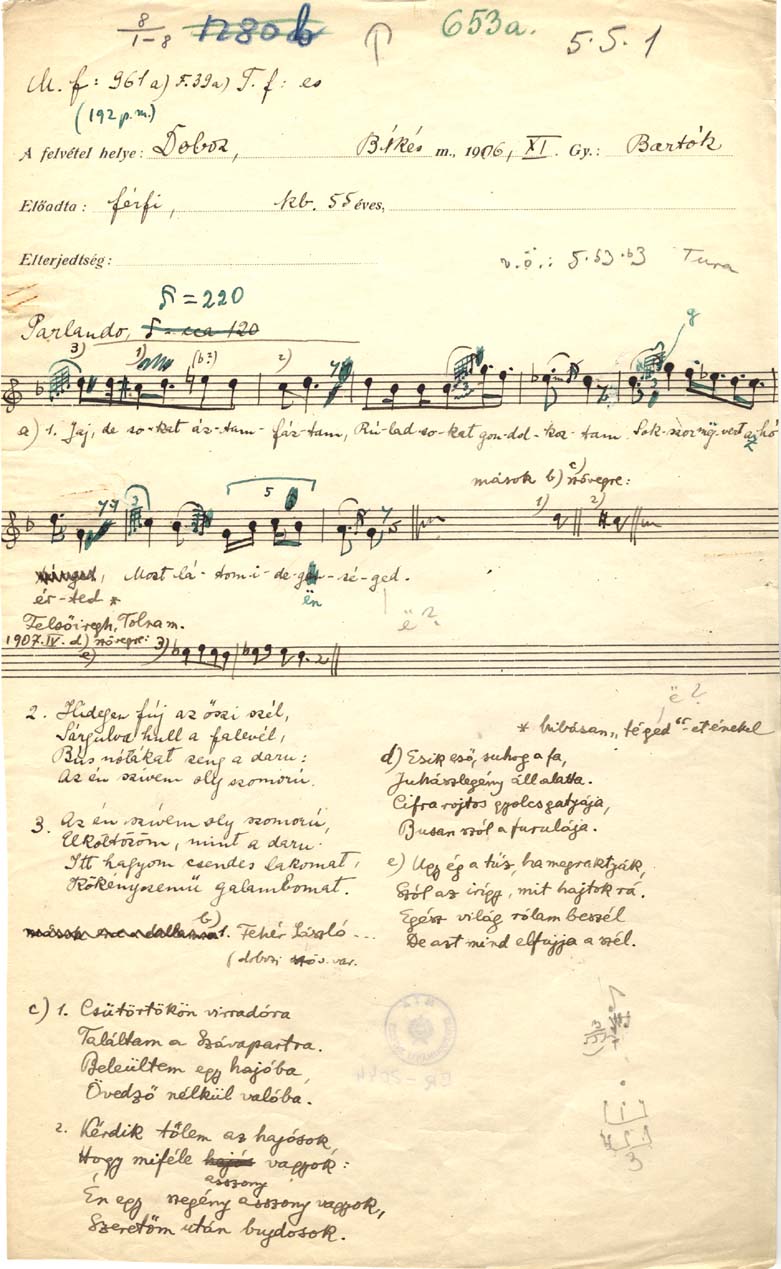 8/1-8 1280b 653a. 5.5.1
M. f: 961a) F.39a) T. f: es
(192 p.m.)
A felvétel helye: Doboz, Békés m., 1906, XI. Gy.: Bartók
Előadta: férfi, kb. 55 éves,
Elterjedtség: v.ö.: 5.53.b3 Tura
♪ = 220
Parlando, ♪ = cca 120
3) 1) (b?) 2) g
a) 1. Jaj, de so-kat áz-tam-fáz-tam, Rú-lad so-kat gon-dol-koz-tam Sok szor mëg-vert az hó
mások b) c) szövegre:
5 1) 2)
Most lá-tom i-de-gen-sé-ged.
ér-ted * ën
ë?
Felsőiregh, Tolnam.
1907.IV. d) szövegre: 3)
e)
ë?
2. Hidegen fúj az őszi szél,
Sárgulva hull a falevél,
Bús nótákat zeng a daru:
Az én szívem oly szomorú.
3. Az én szívem oly szomorú,
Elköltözöm, mint a daru.
Itt hagyom csendes lakomat,
Kökényszemű galambomat.
b) 1. Fehér László ...
(dobozi szöv. var.
* hibásan „téged"-et énekel
d) Esik eső, suhog a fa,
Juhászlegény áll alatta.
Cifra rojtos gyolcsgatyája,
Busan szól a furulája.
e) Ugy ég a tűz, ha megraktják,
Szól az irígy, mit hajtok rá.
Egész világ rólam beszél
De azt mind elfujja a szél.
c) 1. Csütörtökön virradóra
Találtam a Szávapartra.
Beleültem egy hajóba,
Övedző nélkül valóba.
2. Kérdik tőlem az hajósok,
Hogy miféle hajós vagyok:
asszony
Én egy szegény asszony vagyok,
Szeretőm után bujdosok.